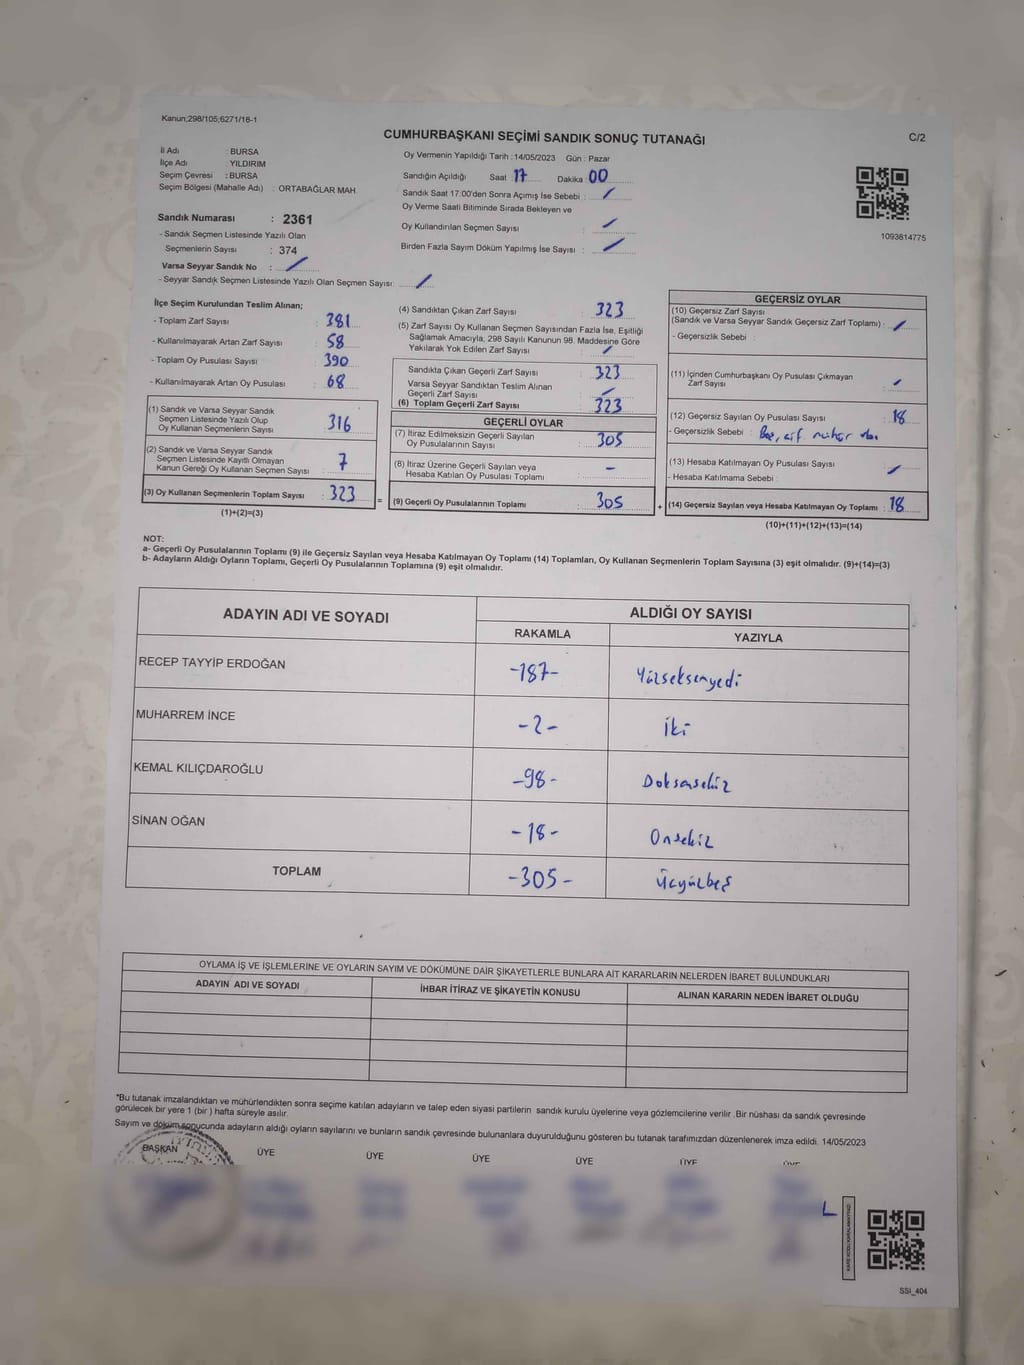 Kanun;298/105;6271/18-1
CUMHURBAŞKANI SEÇİMİ SANDIK SONUÇ TUTANAĞI
C/2
İl Adı : BURSA
İlçe Adı : YILDIRIM
Seçim Çevresi : BURSA
Seçim Bölgesi (Mahalle Adı) : ORTABAĞLAR MAH.
Sandık Numarası : 2361
- Sandık Seçmen Listesinde Yazılı Olan
Seçmenlerin Sayısı : 374
Varsa Seyyar Sandık No :
- Seyyar Sandık Seçmen Listesinde Yazılı Olan Seçmen Sayısı:
Oy Vermenin Yapıldığı Tarih : 14/05/2023 Gün : Pazar
Sandığın Açıldığı Saat 17 Dakika : 00
Sandık Saat 17:00'den Sonra Açımış İse Sebebi :
Oy Verme Saati Bitiminde Sırada Bekleyen ve
Oy Kullandırılan Seçmen Sayısı :
Birden Fazla Sayım Döküm Yapılmış İse Sayısı :
1093814775
İlçe Seçim Kurulundan Teslim Alınan;
- Toplam Zarf Sayısı : 381
- Kullanılmayarak Artan Zarf Sayısı : 58
- Toplam Oy Pusulası Sayısı : 390
- Kullanılmayarak Artan Oy Pusulası : 68
(1) Sandık ve Varsa Seyyar Sandık
Seçmen Listesinde Yazılı Olup
Oy Kullanan Seçmenlerin Sayısı : 316
(2) Sandık ve Varsa Seyyar Sandık
Seçmen Listesinde Kayıtlı Olmayan
Kanun Gereği Oy Kullanan Seçmen Sayısı : 7
(3) Oy Kullanan Seçmenlerin Toplam Sayısı : 323
(1)+(2)=(3)
=
(4) Sandıktan Çıkan Zarf Sayısı : 323
(5) Zarf Sayısı Oy Kullanan Seçmen Sayısından Fazla İse, Eşitliği
Sağlamak Amacıyla, 298 Sayılı Kanunun 98. Maddesine Göre
Yakılarak Yok Edilen Zarf Sayısı :
Sandıkta Çıkan Geçerli Zarf Sayısı : 323
Varsa Seyyar Sandıktan Teslim Alınan
Geçerli Zarf Sayısı :
(6) Toplam Geçerli Zarf Sayısı : 323
GEÇERLİ OYLAR
(7) İtiraz Edilmeksizin Geçerli Sayılan
Oy Pusulalarının Sayısı : 305
(8) İtiraz Üzerine Geçerli Sayılan veya
Hesaba Katılan Oy Pusulaları Toplamı : -
(9) Geçerli Oy Pusulalarının Toplamı : 305
+
GEÇERSİZ OYLAR
(10) Geçersiz Zarf Sayısı
(Sandık ve Varsa Seyyar Sandık Geçersiz Zarf Toplamı) :
- Geçersizlik Sebebi :
(11) İçinden Cumhurbaşkanı Oy Pusulası Çıkmayan
Zarf Sayısı :
(12) Geçersiz Sayılan Oy Pusulası Sayısı : 18
- Geçersizlik Sebebi : Boş, çift mühür
(13) Hesaba Katılmayan Oy Pusulası Sayısı :
- Hesaba Katılmama Sebebi :
(14) Geçersiz Sayılan veya Hesaba Katılmayan Oy Toplamı : 18
(10)+(11)+(12)+(13)=(14)
NOT:
a- Geçerli Oy Pusulalarının Toplamı (9) ile Geçersiz Sayılan veya Hesaba Katılmayan Oy Toplamı (14) Toplamları, Oy Kullanan Seçmenlerin Toplam Sayısına (3) eşit olmalıdır. (9)+(14)=(3)
b- Adayların Aldığı Oyların Toplamı, Geçerli Oy Pusulalarının Toplamına (9) eşit olmalıdır.
ADAYIN ADI VE SOYADI
ALDIĞI OY SAYISI
RAKAMLA YAZIYLA
RECEP TAYYİP ERDOĞAN -187- Yüzseksenyedi
MUHARREM İNCE -2- İki
KEMAL KILIÇDAROĞLU -98- Doksansekiz
SİNAN OĞAN -18- Onsekiz
TOPLAM -305- Üçyüzbeş
OYLAMA İŞ VE İŞLEMLERİNE VE OYLARIN SAYIM VE DÖKÜMÜNE DAİR ŞİKAYETLERLE BUNLARA AİT KARARLARIN NELERDEN İBARET BULUNDUKLARI
ADAYIN ADI VE SOYADI İHBAR İTİRAZ VE ŞİKAYETİN KONUSU ALINAN KARARIN NEDEN İBARET OLDUĞU
*Bu tutanak imzalandıktan ve mühürlendikten sonra seçime katılan adayların ve talep eden siyasi partilerin sandık kurulu üyelerine veya gözlemcilerine verilir .Bir nüshası da sandık çevresinde
görülecek bir yere 1 (bir ) hafta süreyle asılır.
Sayım ve döküm sonucunda adayların aldığı oyların sayılarını ve bunların sandık çevresinde bulunanlara duyurulduğunu gösteren bu tutanak tarafımızdan düzenlenerek imza edildi. 14/05/2023
BAŞKAN ÜYE ÜYE ÜYE ÜYE ÜYE ÜYE
SSI_404